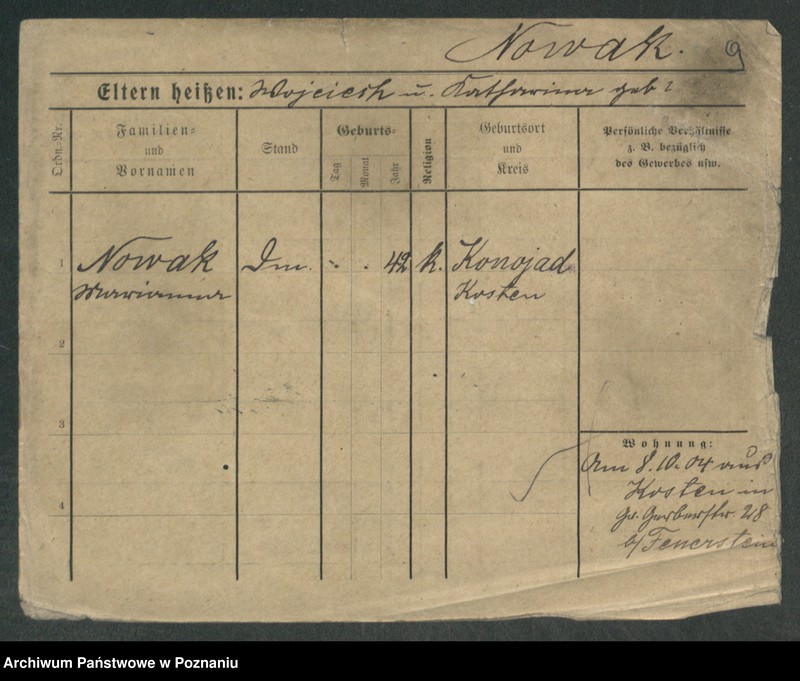 Nowak. 9
Eltern heißen: Wojciech u. Katharina geb?
Ordn.-Nr.
Familien-
und
Vornamen
Stand
Geburts-
Tag
Monat
Jahr
Religion
Geburtsort
und
Kreis
Persönliche Verhältnisse
z. B. bezüglich
des Gewerbes usw.
1 Nowak Dm. - . 42 k. Konojad
Marianna Kosten
2
3
4
Wohnung:
Am 8.10.04 aus
Kosten in
Gr. Gerberstr. 28
b/ Feuerstein
Archiwum Państwowe w Poznaniu